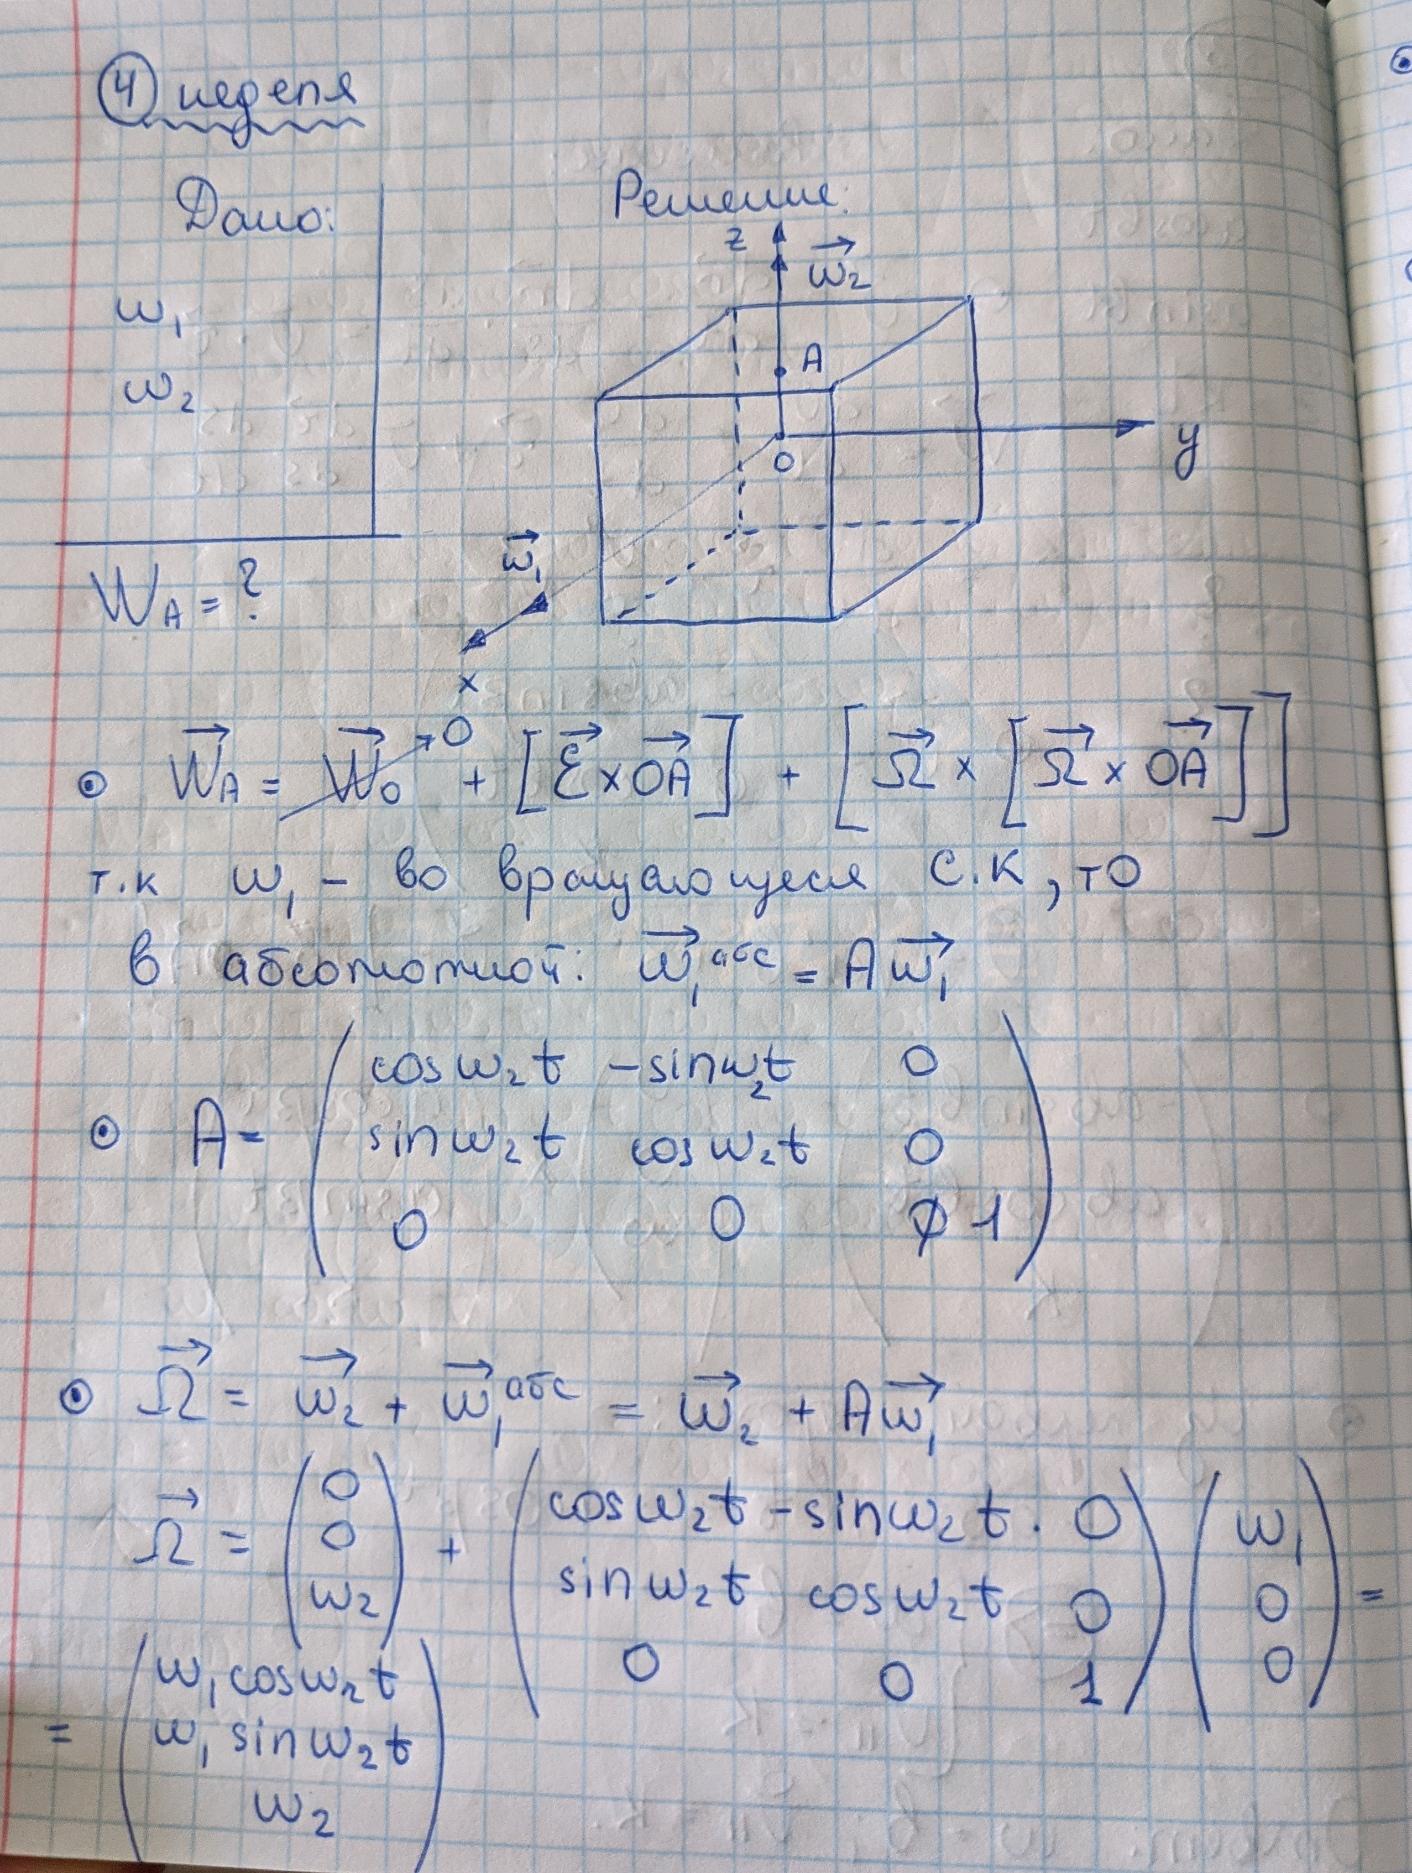 ④ неделя
Дано:
ω₁
ω₂
W_A = ?
Решение:
z
ω⃗₂
A
O
y
ω⃗₁
x
• W⃗_A = W⃗_O→0 + [ε⃗ × OA⃗] + [Ω⃗ × [Ω⃗ × OA⃗]]
т.к ω₁ – во вращающейся С.К, то
в абсолютной: ω⃗₁ᵃᵇᶜ = Aω⃗₁
• A = ( cosω₂t -sinω₂t 0
sinω₂t cosω₂t 0
0 0 1 )
• Ω⃗ = ω⃗₂ + ω⃗₁ᵃᵇᶜ = ω⃗₂ + Aω⃗₁
Ω⃗ = ( 0 0 ω₂ ) + ( cosω₂t -sinω₂t 0
sinω₂t cosω₂t 0
0 0 1 ) ( ω₁ 0 0 ) =
= ( ω₁cosω₂t
ω₁ sinω₂t
ω₂ )